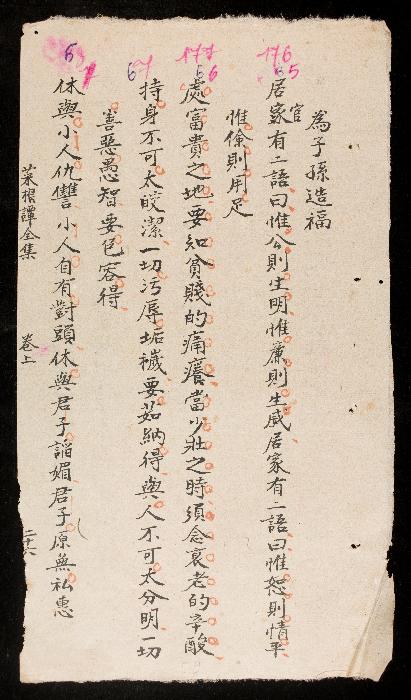 為子孫造福
居官家有二語曰惟公則生明惟廉則生威居家有二語曰惟恕則情平
惟儉則用足
處富貴之地要知貧賤的痛癢當少壯之時須念衰老的辛酸
持身不可太皎潔一切污辱垢穢要茹納得與人不可太分明一切
善惡愚智要包容得
休與小人仇讐小人自有對頭休與君子謟媚君子原無私惠
菜根譚全集
卷上
二十六
176
65
177
66
67